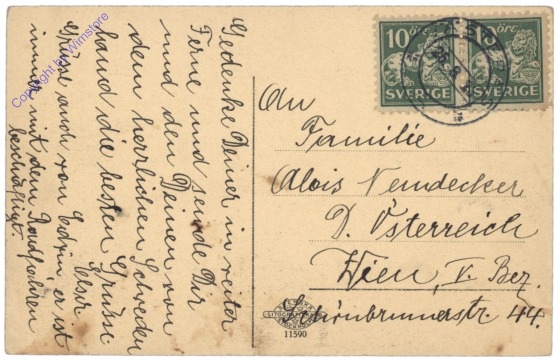 Gedenke Deiner in weiter
Ferne und sende Dir
und den Deinen von
dem herrlichen Schweden
hand die besten Grüsse
Grüsse auch von Edwin, er ist
immer mit dem Radfahren
beschäftigt.
10 ÖRE
SVERIGE
ÖRE
SVERIGE
An
Familie
Alois Neudecker
D. Österreich
Wien, V. Bez.
Schönbrunnerstr. 44.
STOCKHOLM
11590
Copyright by Wirnstore